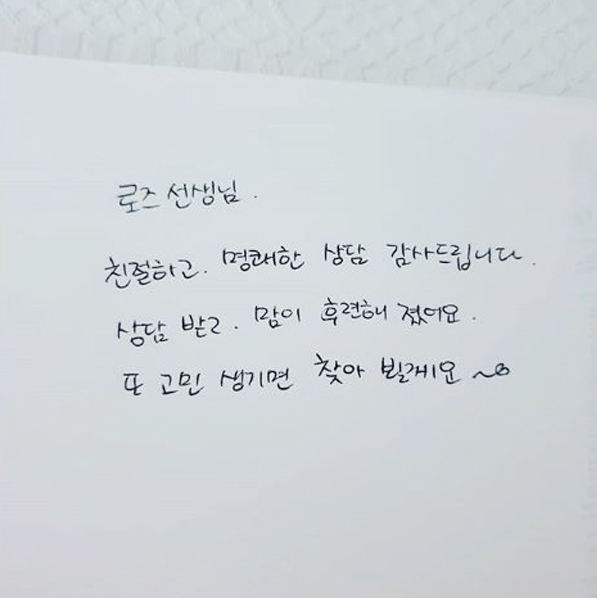 로즈 선생님.
친절하고. 명쾌한 상담 감사드립니다.
상담 받고. 맘이 후련해 졌어요.
또 고민 생기면 찾아 뵐게요 ~